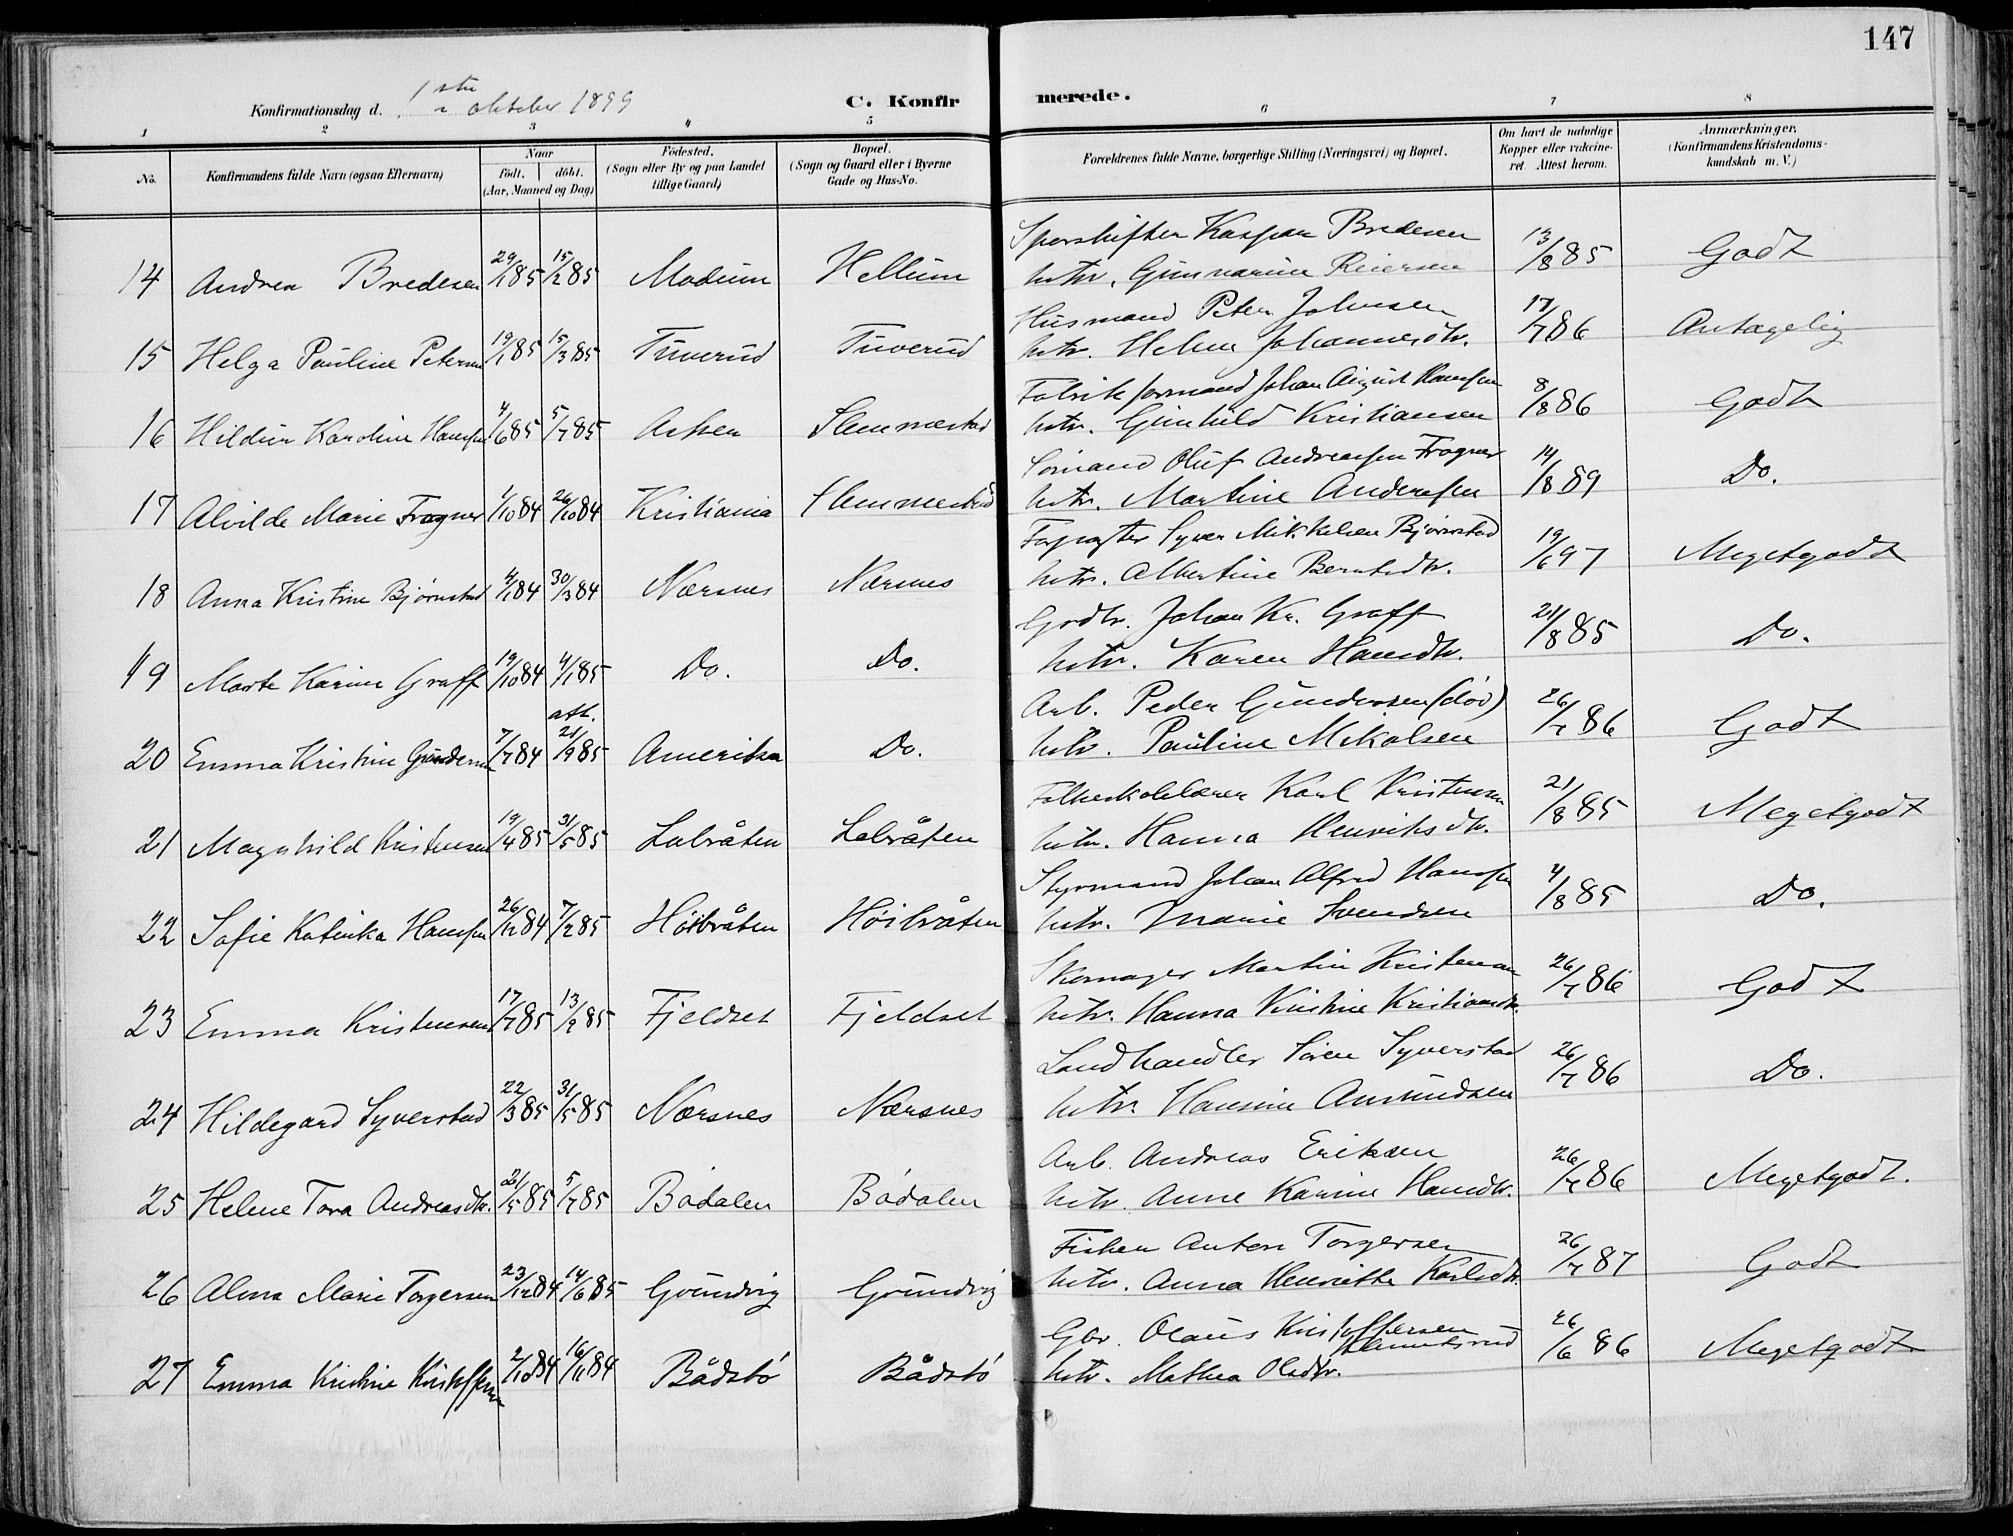 147
Konfirmationsdag d. 1ste oktober 1899
C. Konfirmerede.
1 2 3 4 5 6 7 8
No. Konfirmandens fulde Navn (ogsaa Efternavn) Naar født. døbt. (Aar, Maaned og Dag) Fødested. (Sogn eller By og paa Landet tillige Gaard) Bopæl. (Sogn og Gaard eller i Byerne Gade og Hus-No. Forældrenes fulde Navne, borgerlige Stilling (Næringsvei) og Bopæl. Om havt de naturlige Kopper eller vaccineret Attest herom. Anmærkninger. (Konfirmandens Kristendomskundskab m. V.)
14 Andrea Bredesen 29/1 85 15/2 85 Modum Hellum Sporskifter Kaspar Bredesen 13/8 85 Godt
hstr. Gunnarine Reiersen
15 Helga Pauline Petersen 19/1 85 15/3 85 Tuverud Tuverud Husmand Peter Johnsen 17/7 86 Antagelig
hstr. Helene Johannesdtr.
16 Hildur Karoline Hansen 4/6 85 5/7 85 Asker Slemmestad Fabrikformand Johan August Hansen 8/8 86 Godt
hstr. Gunhild Kristiansen
17 Alvilde Marie Fragner 1/10 84 26/10 84 Kristiania Slemmestad Sømand Oluf Andreassen Fragner 14/8 89 Do.
hstr. Martine Andersen
18 Anna Kristine Bjørnstad 4/1 84 30/3 84 Nærsnes Nærsnes Forpagter Syver Mikkelsen Bjørnstad 19/6 97 Megetgodt
hstr. Albertine Berntsdtr.
19 Marte Karine Graff 19/10 84 4/1 85 Do. Do. Grdbr. Johan Kr. Graff 21/8 85 Do.
hstr. Karen Hansdtr.
20 Emma Kristine Gundersen 7/7 84 att. 21/9 85 Amerika Do. Arb. Peder Gundersen (död) 26/7 86 Godt
hstr. Pauline Mikalsen
21 Magnhild Kristensen 19/4 85 31/5 85 Labråten Labråten Folkeskolelærer Karl Kristensen 21/8 85 Megetgodt
hstr. Hanna Henriksdtr.
22 Sofie Katinka Hansen 26/12 84 7/2 85 Høibråten Høibråten Styrmand Johan Alfred Hansen 4/8 85 Do.
hstr. Marie Svendsen
23 Emma Kristensen 17/7 85 13/9 85 Fjeldset Fjeldset Skomager Martin Kristensen 26/7 86 Godt
hstr. Hanna Kristine Kristiansdtr.
24 Hildegard Syverstad 22/3 85 31/5 85 Nærsnes Nærsnes Landhandler Sören Syverstad 26/7 86 Do.
hstr. Hansine Amundsen
25 Helene Tora Andreasdtr. 21/5 85 5/7 85 Bødalen Bødalen Arb. Andreas Eriksen 26/7 86 Megetgodt.
hstr. Anne Karine Hansdtr.
26 Alma Marie Torgersen 23/12 84 14/6 85 Grundvig Grundvig Fisker Anton Torgersen 26/7 87 Godt
hstr. Anna Henriette Karlsdtr.
27 Emma Kristine Kristoffersen 2/10 84 16/11 84 Bådstö Bådstö Gbr. Olaus Kristoffersen 26/6 86 Megetgodt
hstr. Mathea Olsdtr.